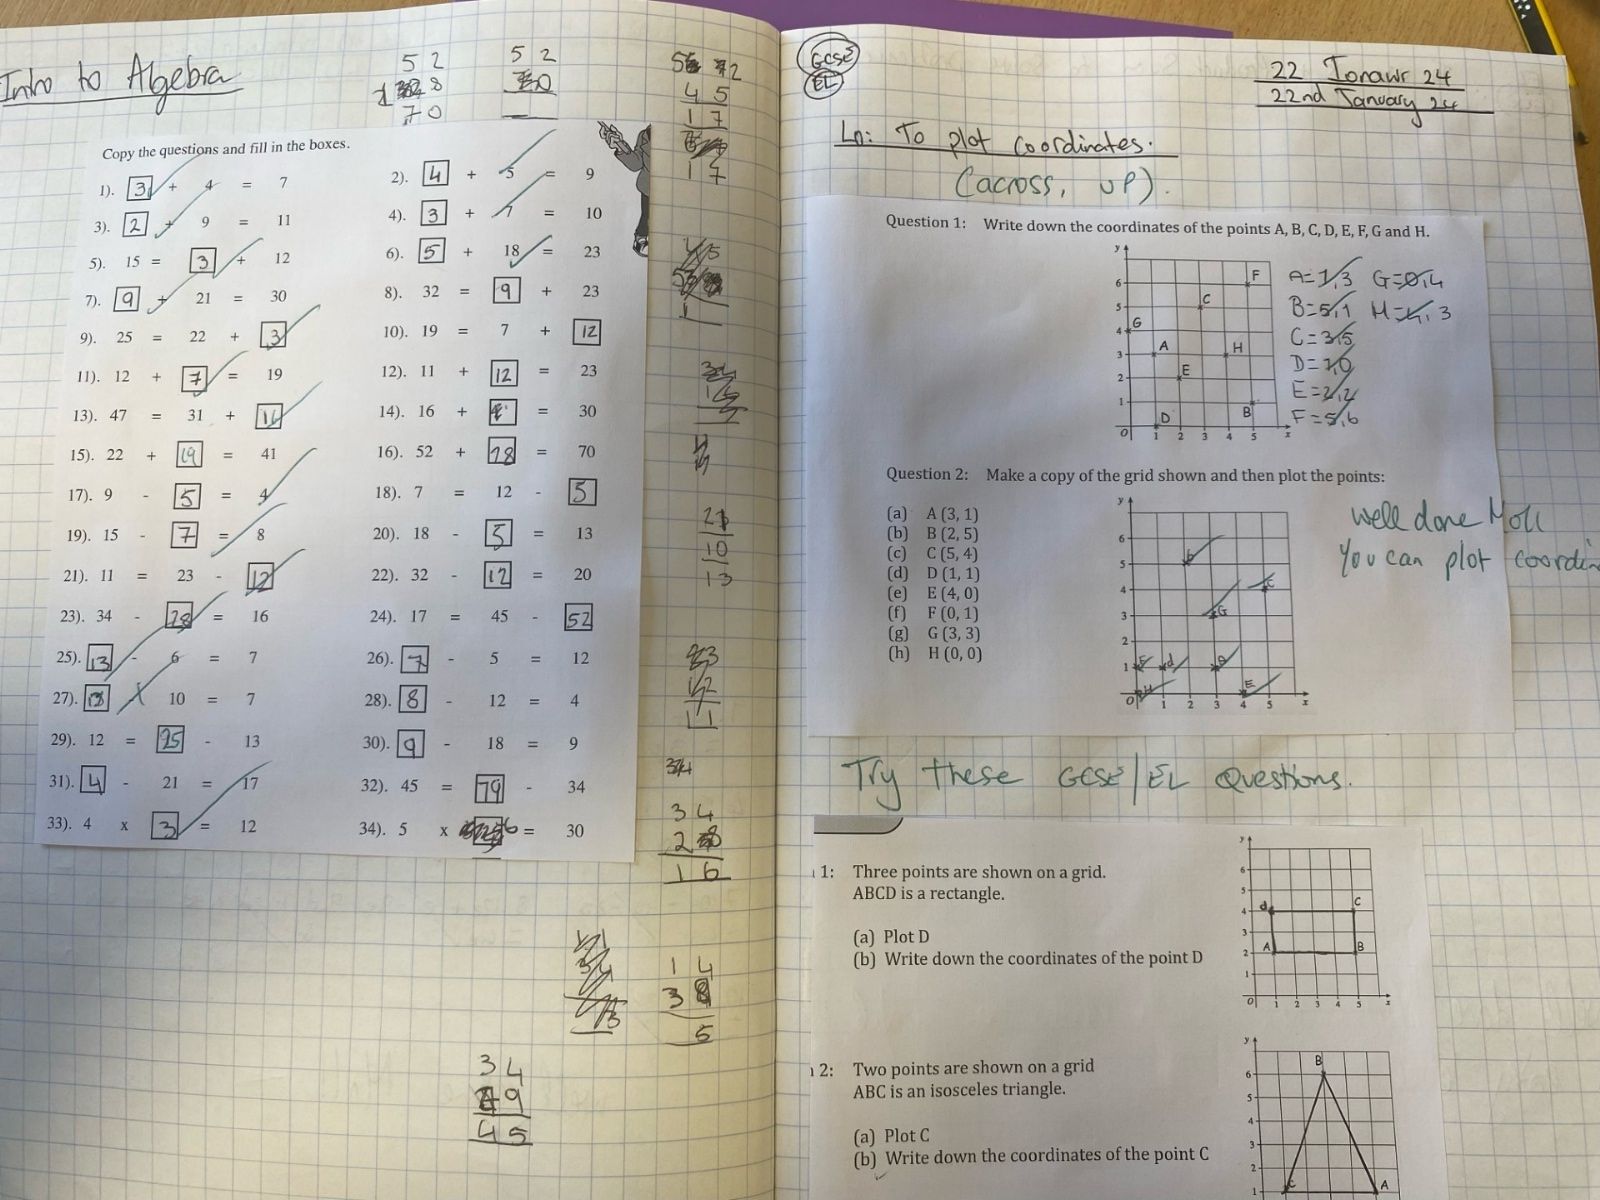 Intro to Algebra
5 2
8
7 0
5 2
Copy the questions and fill in the boxes.
1). 3 + 4 = 7
2). 4 + 5 = 9
3). 2 + 9 = 11
4). 3 + 7 = 10
5). 15 = 3 + 12
6). 5 + 18 = 23
7). 9 + 21 = 30
8). 32 = 9 + 23
9). 25 = 22 + 3
10). 19 = 7 + 12
11). 12 + 7 = 19
12). 11 + 12 = 23
13). 47 = 31 + 16
14). 16 + = 30
15). 22 + 19 = 41
16). 52 + 18 = 70
17). 9 - 5 = 4
18). 7 = 12 - 5
19). 15 - 7 = 8
20). 18 - 5 = 13
21). 11 = 23 - 12
22). 32 - 12 = 20
23). 34 - 18 = 16
24). 17 = 45 - 52
25). 13 - 6 = 7
26). 7 - 5 = 12
27). - 10 = 7
28). 8 - 12 = 4
29). 12 = 25 - 13
30). 9 - 18 = 9
31). 4 - 21 = 17
32). 45 = 79 - 34
33). 4 x 3 = 12
34). 5 x 6 = 30
4 5
1 7
1 7
10
13
3 4
2 8
1 6
1 4
3
5
3 4
9
4 5
GCSE
EL
22 Ionawr 24
22nd January 24
Ln: To plot coordinates.
(across, up).
Question 1: Write down the coordinates of the points A, B, C, D, E, F, G and H.
y
6
5
4
3
2
1
O 1 2 3 4 5 x
F
C
G
A
H
E
D
B
A=1,3 G=0,4
B=5,1 H=4,3
C=3,5
D=1,0
E=2,2
F=5,6
Question 2: Make a copy of the grid shown and then plot the points:
(a) A (3, 1)
(b) B (2, 5)
(c) C (5, 4)
(d) D (1, 1)
(e) E (4, 0)
(f) F (0, 1)
(g) G (3, 3)
(h) H (0, 0)
y
6
5
4
3
2
1
O 1 2 3 4 5 x
G
d
H
E
well done Moll
You can plot
Try these GCSE/EL Questions.
1: Three points are shown on a grid.
ABCD is a rectangle.
(a) Plot D
(b) Write down the coordinates of the point D
y
6
5
4
3
2
1
O 1 2 3 4 5 x
d
C
A
B
2: Two points are shown on a grid
ABC is an isosceles triangle.
(a) Plot C
(b) Write down the coordinates of the point C
y
6
5
4
3
2
1
B
C
A